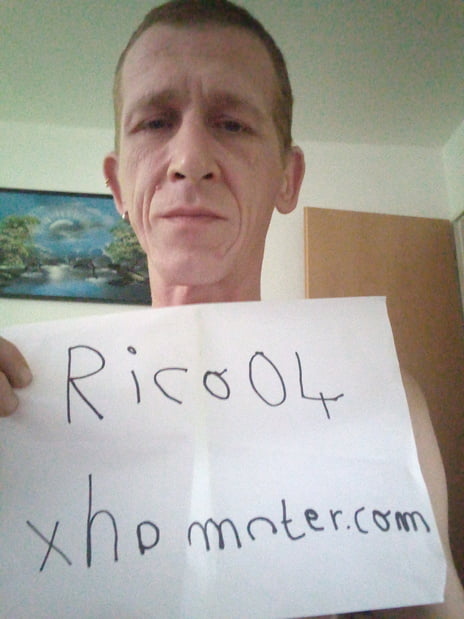 Rico04
xho mnter.com